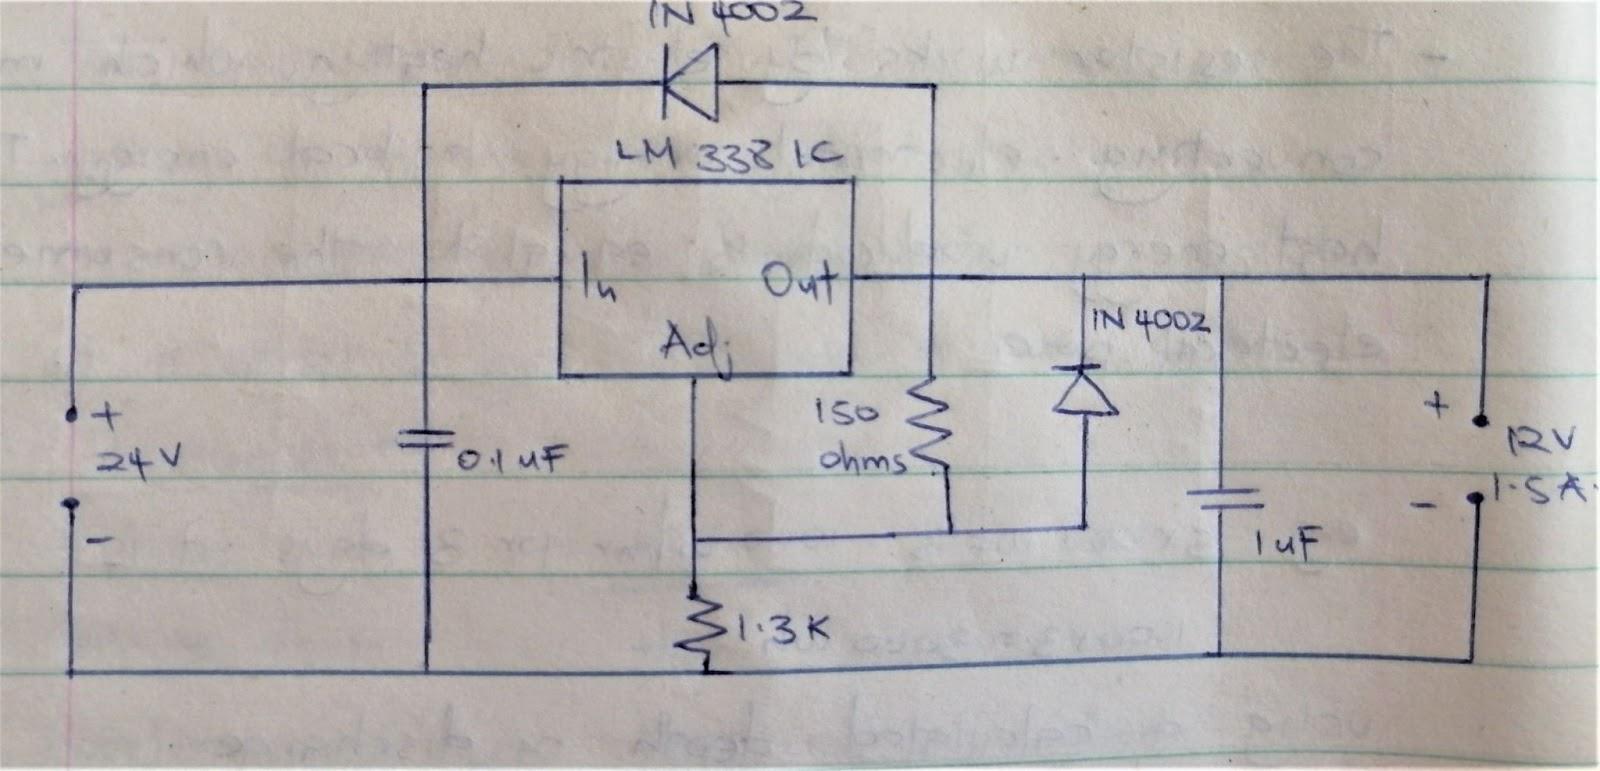 IN 4002
LM 338 IC
In
Out
Adj
IN 4002
+
24V
-
0.1uF
150
ohms
+
12V
1.5A.
-
1uF
1.3K